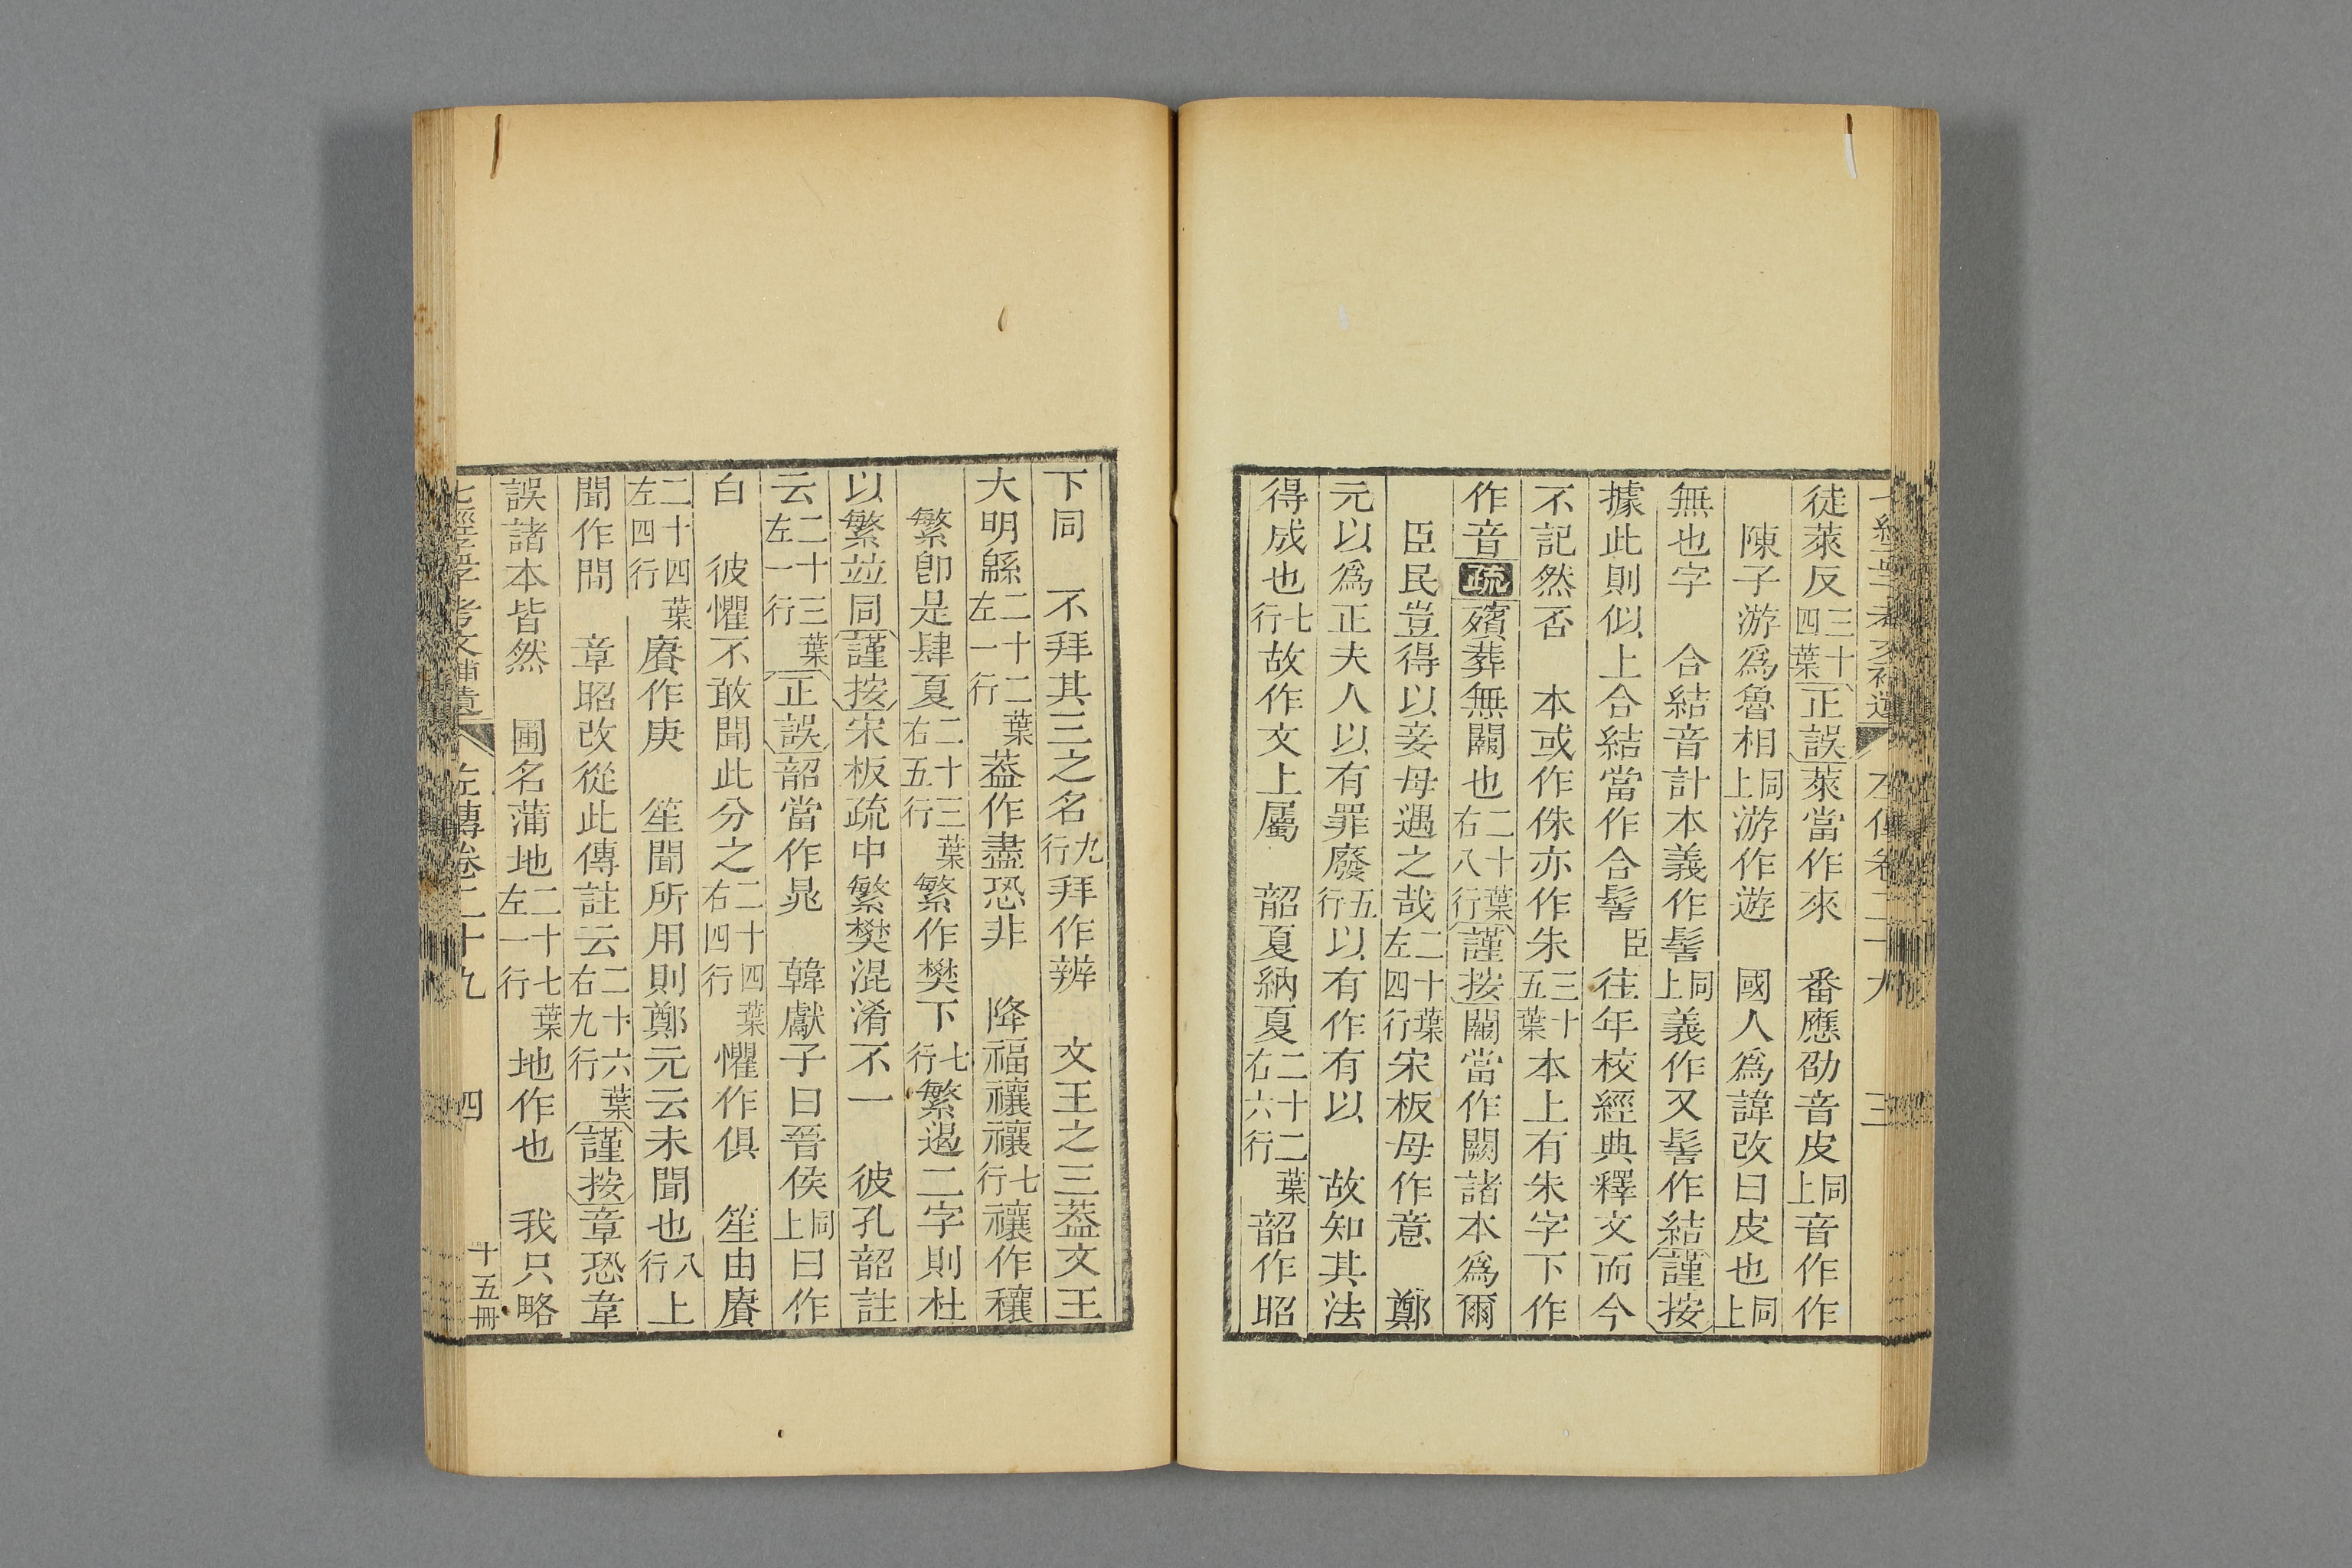 七經孟子考文補遺 左傳卷二十九 三
徒萊反三十四葉正誤萊當作來 番應劭音皮同上音作作
陳子游爲魯相同上游作遊 國人爲諱改曰皮也同上
無也字 合結音計本義作髻同上義作又髻作結謹按
據此則似上合結當作合髻臣往年校經典釋文而今
不記然否 本或作侏亦作朱三十五葉本上有朱字下作
作音疏殯葬無闕也二十葉右八行謹按闕當作闕諸本爲爾
臣民豈得以妾母遇之哉二十葉左四行宋板母作意 鄭
元以爲正夫人以有罪廢五行以有作有以 故知其法
得成也七行故作文上屬 韶夏納夏二十二葉右六行韶作昭
下同 不拜其三之名九行拜作辨 文王之三葢文王
大明緜二十二葉左一行葢作盡恐非 降福禳禳七行禳作穰
繁卽是肆夏二十三葉右五行繁作樊下七行繁遏二字則杜
以繁並同謹按宋板疏中繁樊混淆不一 彼孔韶註
云二十三葉左一行正誤韶當作晁 韓獻子曰晉侯同上曰作
白 彼懼不敢聞此分之二十四葉右四行懼作俱 笙由賡
二十四葉左四行賡作庚 笙聞所用則鄭元云未聞也八行上
聞作問 章昭改從此傳註云二十六葉右九行謹按章恐韋
誤諸本皆然 圃名蒲地二十七葉左一行地作也 我只略
七經孟子考文補遺 左傳卷二十九 四 十五冊